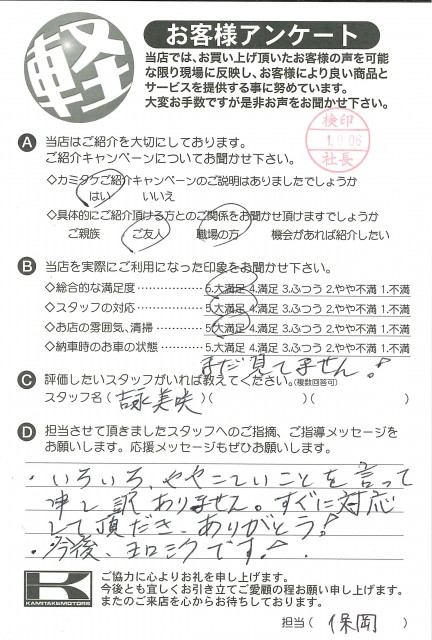 軽
お客様アンケート
当店では、お買い上げ頂いたお客様の声を可能
な限り現場に反映し、お客様により良い商品と
サービスを提供する事に努めています。
大変お手数ですが是非お声をお聞かせ下さい。
検印
1.9.06
社長
A 当店はご紹介を大切にしております。
ご紹介キャンペーンについてお聞かせ下さい。
◇カミタケご紹介キャンペーンのご説明はありましたでしょうか
はい いいえ
◇具体的にご紹介頂ける方とのご関係をお聞かせ頂けますでしょうか
ご親族 ご友人 職場の方 機会があれば紹介したい
B 当店を実際にご利用になった印象をお聞かせ下さい。
◇総合的な満足度・・・・・・・・・・・・5.大満足 4.満足 3.ふつう 2.やや不満 1.不満
◇スタッフの対応・・・・・・・・・・・・5.大満足 4.満足 3.ふつう 2.やや不満 1.不満
◇お店の雰囲気、清掃・・・・・・・・5.大満足 4.満足 3.ふつう 2.やや不満 1.不満
◇納車時のお車の状態・・・・・・・・5.大満足 4.満足 3.ふつう 2.やや不満 1.不満
まだ見てません!
C 評価したいスタッフがいれば教えてください。(複数回答可)
スタッフ名(吉永美咲)( )( )
D 担当させて頂きましたスタッフへのご指摘、ご指導メッセージを
お願いします。応援メッセージもぜひお願いします。
・いろいろ、ややこしいことを言って
申し訳ありません。すぐに対応
して頂だき、ありがとう!
・今後、ヨロシクです!
K
KAMITAKEMOTORS
ご協力に心よりお礼を申し上げます。
今後とも宜しくお引き立てご愛顧の程お願い申し上げます。
またのご来店を心からお待ちしております。
担当(保岡)